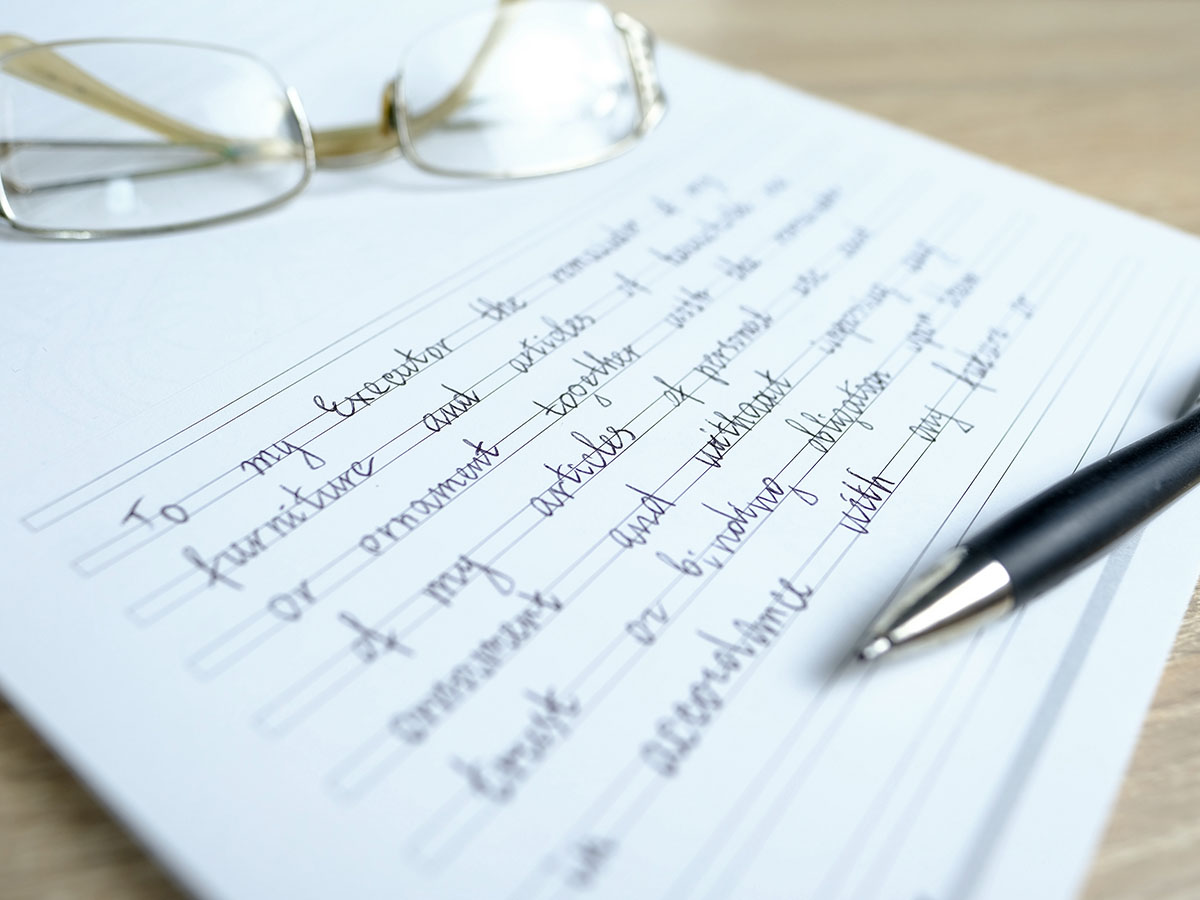 To my Executor the remainder of my
furniture and articles of household or
or ornament together with the remainder
of my articles of personal use and
ornament and without imposing any
trust or binding obligation upon them
in accordance with any future or